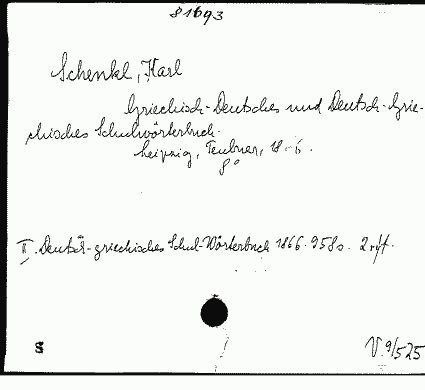 81693
Schenkl, Karl
Griechisch-Deutsches und Deutsch-Grie-
chisches Schulwörterbuch.
Leipzig, Teubner, 18
8°
II. Deutsch-griechisches Schul-Wörterbuch 1866. 958 s. 2
S
V. 9/525